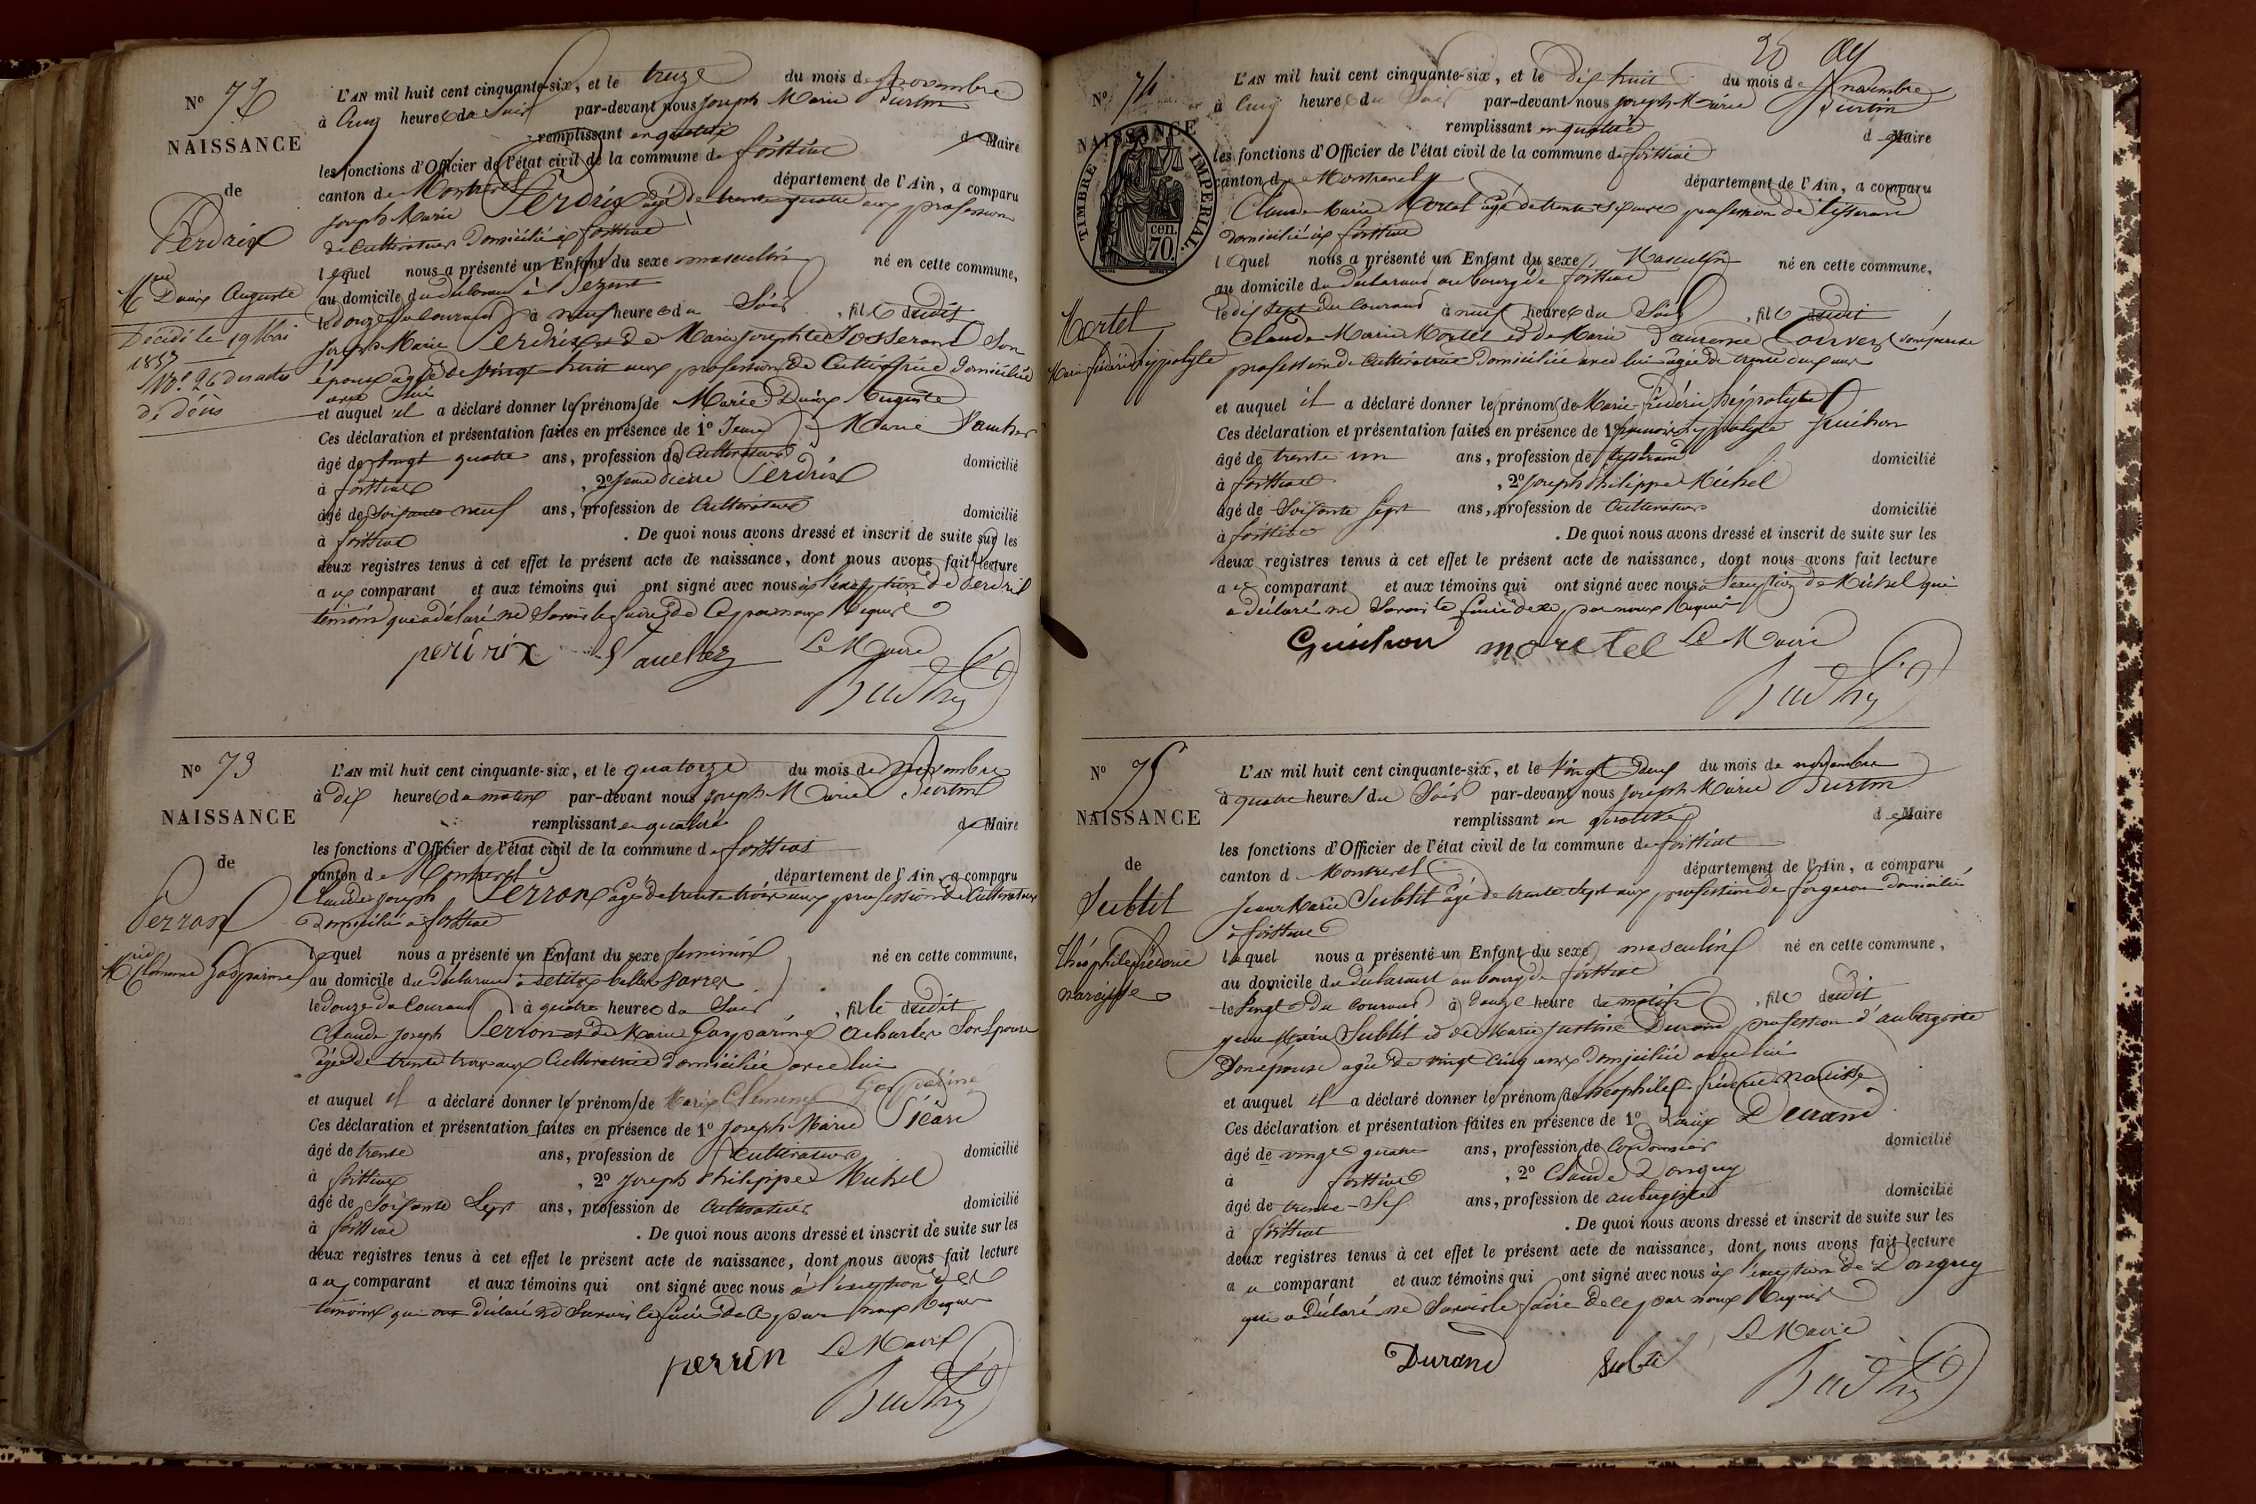 N° 72
NAISSANCE
de
Perdrix
Décédé le 19 Mai
1857
N° 26 des actes
de décès
L'AN mil huit cent cinquante-six, et le treize du mois de novembre
à cinq heures du soir par-devant nous Joseph Marie
remplissant en qualité de Maire
les fonctions d'Officier de l'état civil de la commune de
canton de Montrevel département de l'Ain, a comparu
Joseph Marie Perdrix âgé de trente quatre ans profession
de Cultivateur domicilié à
lequel nous a présenté un Enfant du sexe masculin né en cette commune,
au domicile du déclarant à
le douze du courant à neuf heures du Soir, fils dudit
Joseph Marie Perdrix et de Marie Josephte Josserand son
épouse âgée de vingt huit ans profession de Cultivatrice domiciliée
avec lui
et auquel il a déclaré donner les prénoms de Marie Auguste
Ces déclaration et présentation faites en présence de 1° Jean Marie
âgé de vingt quatre ans, profession de Cultivateur domicilié
à , 2° Perdrix
âgé de soixante neuf ans, profession de Cultivateur domicilié
à . De quoi nous avons dressé et inscrit de suite sur les
deux registres tenus à cet effet le présent acte de naissance, dont nous avons fait lecture
aux comparant et aux témoins qui ont signé avec nous à l'exception de Perdrix
témoin qui a déclaré ne Savoir le faire de ce par nous Requis
perdrix Le Maire
N° 73
NAISSANCE
de
Perron
Mie Clémence Gasparine
L'AN mil huit cent cinquante-six, et le quatorze du mois de novembre
à dix heures du matin par-devant nous Joseph Marie
remplissant en qualité de Maire
les fonctions d'Officier de l'état civil de la commune de
canton de Montrevel département de l'Ain, a comparu
Claude Joseph Perron âgé de trente trois ans profession de Cultivateur
domicilié à
lequel nous a présenté un Enfant du sexe feminin né en cette commune,
au domicile du déclarant à
le douze du Courant à quatre heures du Soir, fille dudit
Claude Joseph Perron et de Marie Gasparine Son Epouse
âgée de trente trois ans Cultivatrice domiciliée avec lui
et auquel il a déclaré donner les prénoms de Marie Clémence Gasparine
Ces déclaration et présentation faites en présence de 1° Joseph Marie
âgé de trente ans, profession de Cultivateur domicilié
à , 2° Joseph Philippe Michel
âgé de Soixante Sept ans, profession de Cultivateur domicilié
à . De quoi nous avons dressé et inscrit de suite sur les
deux registres tenus à cet effet le présent acte de naissance, dont nous avons fait lecture
aux comparant et aux témoins qui ont signé avec nous à l'exception des
témoins qui ont déclaré ne Savoir le faire de ce par nous Requis
perron Le Maire
N° 74
NAISSANCE
TIMBRE IMPERIAL.
cen.
70.
Mortel
L'AN mil huit cent cinquante-six, et le dix huit du mois de novembre
à Cinq heures du Soir par-devant nous Joseph Marie
remplissant en qualité de Maire
les fonctions d'Officier de l'état civil de la commune de
canton de Montrevel département de l'Ain, a comparu
Claude Marie Mortel âgé de trente ans profession de tisserand
domicilié à
lequel nous a présenté un Enfant du sexe Masculin né en cette commune,
au domicile du déclarant au bourg de
le dix sept du Courant à neuf heures du Soir, fils dudit
Claude Marie Mortel et de Marie
profession de Cultivatrice domiciliée avec lui âgée de trente ans
et auquel il a déclaré donner les prénoms de Marie Fréderic hippolyte
Ces déclaration et présentation faites en présence de 1° hippolyte Guichon
âgé de trente un ans, profession de tisserand domicilié
à , 2° Joseph Philippe Michel
âgé de Soixante Sept ans, profession de Cultivateur domicilié
à . De quoi nous avons dressé et inscrit de suite sur les
deux registres tenus à cet effet le présent acte de naissance, dont nous avons fait lecture
aux comparant et aux témoins qui ont signé avec nous à l'exception de Michel qui
a déclaré ne Savoir le faire de ce par nous Requis
Guichon moretel Le Maire
N° 75
NAISSANCE
de
Subtil
théophile fréderic
narcisse
L'AN mil huit cent cinquante-six, et le Vingt Deux du mois de novembre
à quatre heures du Soir par-devant nous Joseph Marie
remplissant en qualité de Maire
les fonctions d'Officier de l'état civil de la commune de
canton de Montrevel département de l'Ain, a comparu
Jean Marie Subtil âgé de trente Sept ans profession de forgeron domicilié
à
lequel nous a présenté un Enfant du sexe masculin né en cette commune,
au domicile du déclarant au bourg de
le Vingt du courant à Douze heure du matin, fils dudit
Jean Marie Subtil et de Marie Justine Durand profession d'aubergiste
Son épouse âgée de vingt cinq ans domiciliée avec lui
et auquel il a déclaré donner les prénoms de théophile fréderic narcisse
Ces déclaration et présentation faites en présence de 1° Louis Durand
âgé de vingt quatre ans, profession de Cordonnier domicilié
à , 2° Claude Donguy
âgé de trente-Six ans, profession de aubergiste domicilié
à . De quoi nous avons dressé et inscrit de suite sur les
deux registres tenus à cet effet le présent acte de naissance, dont nous avons fait lecture
au comparant et aux témoins qui ont signé avec nous à l'exception de Donguy
qui a Déclaré ne Savoir le faire de ce par nous Requis
Durand Subtil Le Maire